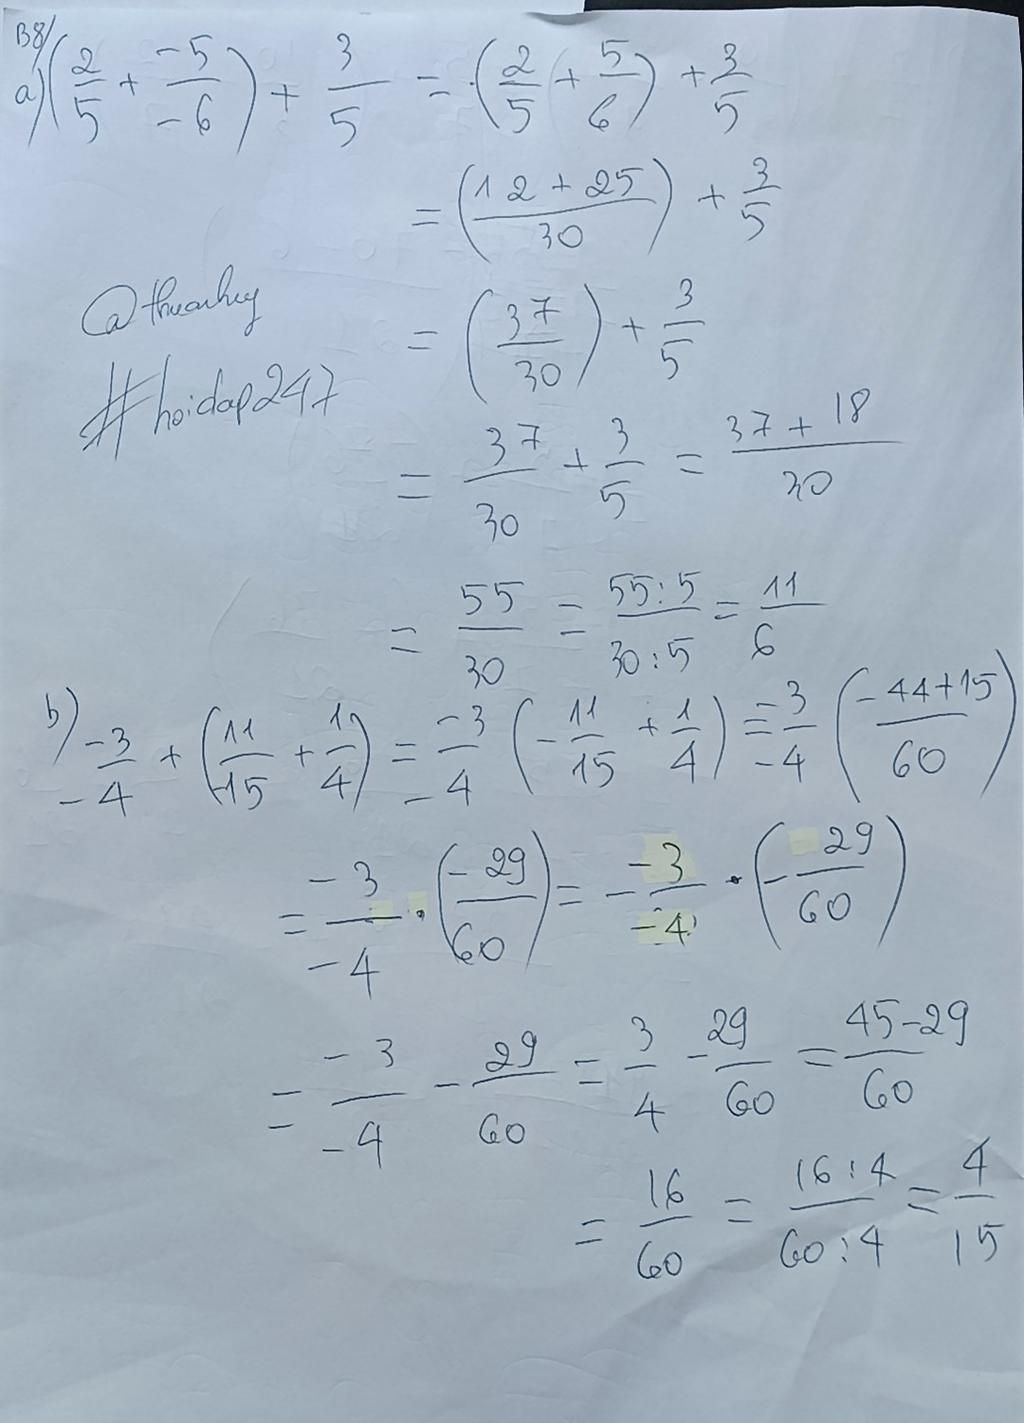 B8/
a) (2/5 + -5/-6) + 3/5 = (2/5 + 5/6) + 3/5
= (12 + 25/30) + 3/5
@thuanhuy
= (37/30) + 3/5
#hoidap247
= 37/30 + 3/5 = 37 + 18/30
= 55/30 = 55:5/30:5 = 11/6
b) -3/-4 + (11/-15 + 1/4) = -3/-4 (-11/15 + 1/4) = -3/-4 (-44+15/60)
= -3/-4 . (-29/60) = - -3/-4 . (-29/60)
= -3/-4 - 29/60 = 3/4 - 29/60 = 45-29/60
= 16/60 = 16:4/60:4 = 4/15